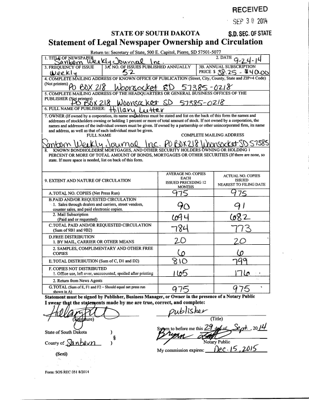 RECEIVED
SEP 30 2014
S.D. SEC. OF STATE
STATE OF SOUTH DAKOTA
Statement of Legal Newspaper Ownership and Circulation
Return to: Secretary of State, 500 E. Capitol, Pierre, SD 57501-5077
1. TITLE OF NEWSPAPER
Sanborn Weekly Journal Inc.
2. DATE 9-24-14
3. FREQUENCY OF ISSUE
Weekly
3A. NO. OF ISSUES PUBLISHED ANNUALLY
52
3B. ANNUAL SUBSCRIPTION
PRICE $ 38.25 - $40.00
4. COMPLETE MAILING ADDRESS OF KNOWN OFFICE OF PUBLICATION (Street, City, County, State and ZIP+4 Code)
(Not printer)
PO BOX 218 Woonsocket SD 57385-0218
5. COMPLETE MAILING ADDRESS OF THE HEADQUARTERS OF GENERAL BUSINESS OFFICES OF THE
PUBLISHER (Not printer)
PO BOX 218 Woonsocket SD 57385-0218
6. FULL NAME OF PUBLISHER: Hillary Lutter
7. OWNER (If owned by a corporation, its name and address must be stated and list on the back of this form the names and
addresses of stockholders owning or holding 1 percent or more of total amount of stock. If not owned by a corporation, the
names and addresses of the individual owners must be given. If owned by a partnership or other unincorporated firm, its name
and address, as well as that of each individual must be given.
FULL NAME COMPLETE MAILING ADDRESS
Sanborn Weekly Journal Inc. PO Box 218 Woonsocket SD 57385
8. KNOWN BONDHOLDER MORTGAGES, AND OTHER SECURITY HOLDERS OWNING OR HOLDING 1
PERCENT OR MORE OF TOTAL AMOUNT OF BONDS, MORTGAGES OR OTHER SECURITIES (If there are none, so
state. If more space is needed, list on back of this form.
9. EXTENT AND NATURE OF CIRCULATION
AVERAGE NO. COPIES
EACH
ISSUED PRECEDING 12
MONTHS
ACTUAL NO. COPIES
ISSUED
NEAREST TO FILING DATE
A. TOTAL NO. COPIES (Net Press Run) 975 975
B. PAID AND/OR REQUESTED CIRCULATION
1. Sales through dealers and carriers, street vendors,
counter sales, and paid electronic copies. 90 91
2. Mail Subscription
(Paid and or requested) 694 682
C. TOTAL PAID AND/OR REQUESTED CIRCULATION
(Sum of 9B1 and 9B2) 784 773
D. FREE DISTRIBUTION
1. BY MAIL, CARRIER OR OTHER MEANS 20 20
2. SAMPLES, COMPLIMENTARY AND OTHER FREE
COPIES 6 6
E. TOTAL DISTRIBUTION (Sum of C, D1 and D2) 810 799
F. COPIES NOT DISTRIBUTED
1. Office use, left over, unaccounted, spoiled after printing 165 176
2. Return from News Agents
G. TOTAL (Sum of E, F1 and F2 - Should equal net press run
shown in A) 975 975
Statement must be signed by Publisher, Business Manager, or Owner in the presence of a Notary Public
I swear that the statements made by me are true, correct, and complete:
publisher
(Signature) (Title)
State of South Dakota )
§
County of Sanborn )
Sworn to before me this 29 day of Sept. 2014
Notary Public
(Seal)
My commission expires: Dec. 15, 2015
Form: SOS REC 051 8/2014